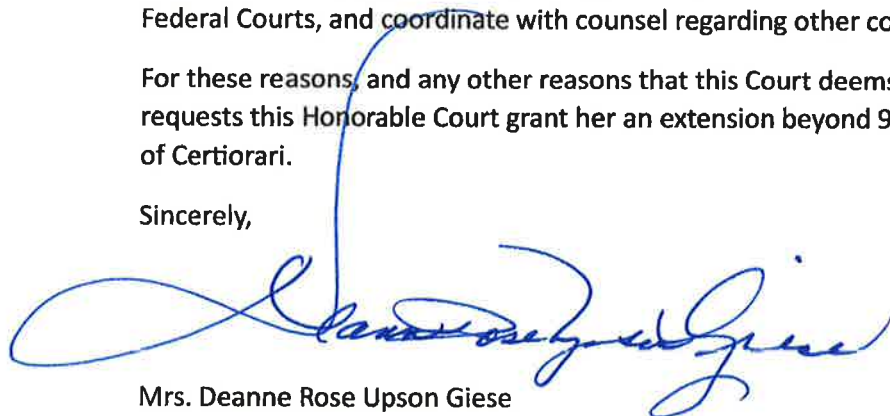 Federal Courts, and coordinate with counsel regarding other co
For these reasons, and any other reasons that this Court deems
requests this Honorable Court grant her an extension beyond 9
of Certiorari.
Sincerely,
Deanne Rose Upson Giese
Mrs. Deanne Rose Upson Giese